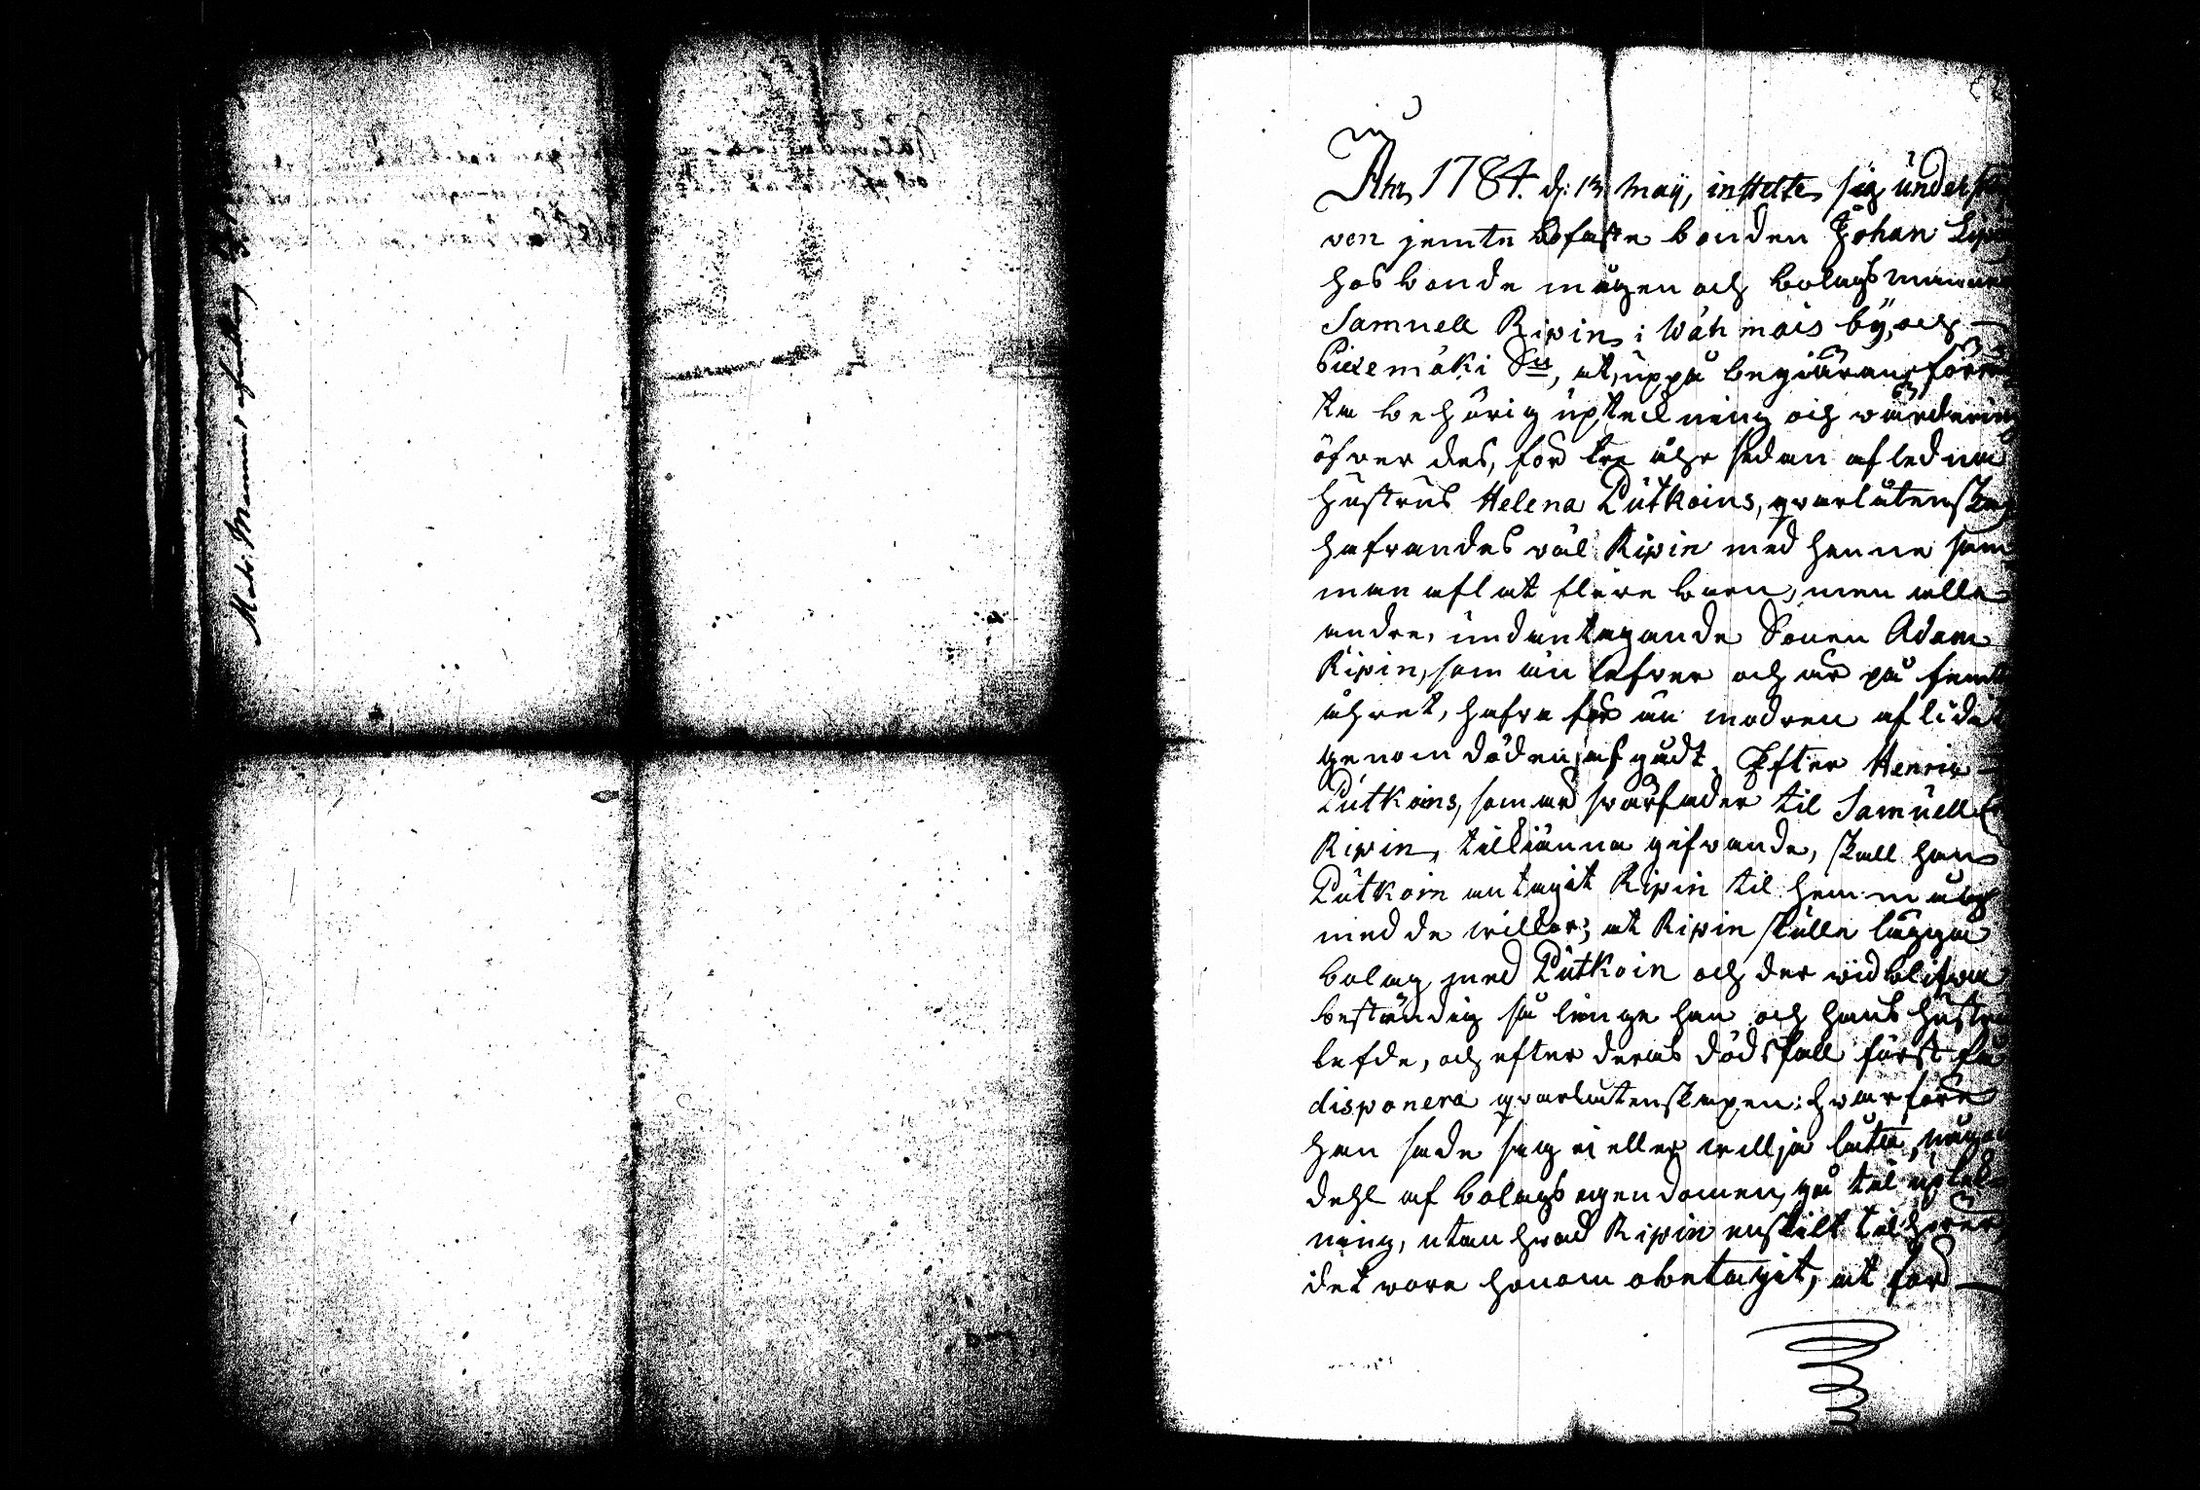 Åhr 1784. d: 13 Maij, instelte sig underskre
ven jemte bofaste bonden Johan
hos bonde mågen och bolagsmannen
Samuell Ripin i Wähmais by, och
Piremäki Sn, at, uppå begiäran, förrä
ta behörig upteckning och wärdering
öfver des, för tre åhr sedan afledna
hustrus Helena Putkoins, qvarlåtenskap
hafvandes väl Ripin med henne sam
man aflat flere barn, men alla
andre, undantagande Sonen Adam
Ripin, som än lefver och är på femte
åhret, hafva för än modren aflidit
genom döden afgådt. Efter Henric
Putkoins, som är svärfader til Samuell
Ripin, tillkiänna gifvande, skall han
Putkoin antagit Ripin til hemmåg
med de willkor; at Ripin skulle lägga
bolag med Putkoin och der wid blifva
beständig så länge han och hans hustru
lefde, och efter deras dödsfall först få
disponera qvarlåtenskapen: hvarföre
han sade sig ei eller willja låta, någon
dehl af bolags egendomen, gå til uptek
ning, utan hvad Ripin enskilt tilhörer,
det vore honom obetagit, at för